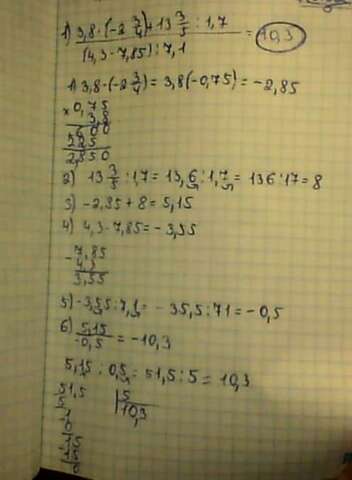 1) (3,8·(-2 3/4)+13 3/5 : 1,7) / ((4,3-7,85):7,1) = 10,3
1) 3,8·(-2 3/4) = 3,8(-0,75) = -2,85
× 0,75
3,8
600
225
2,850
2) 13 3/5 : 1,7 = 13,6 : 1,7 = 136:17 = 8
3) -2,85 + 8 = 5,15
4) 4,3-7,85 = -3,55
- 7,85
4,3
3,55
5) -3,55 : 7,1 = -35,5 : 71 = -0,5
6) 5,15/-0,5 = -10,3
5,15 : 0,5 = 51,5 : 5 = 10,3
51,5 | 5
5 10,3
-1
0
-15
15
0